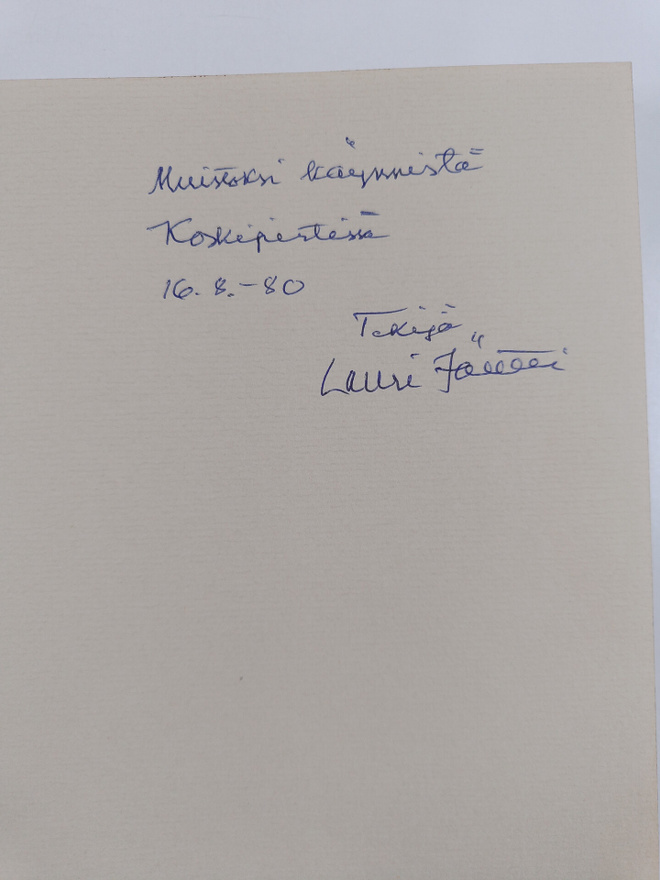 Muistoksi käynnistä
Koskipirtissä
16.8.-80
Tekijä
Lauri Jäntti